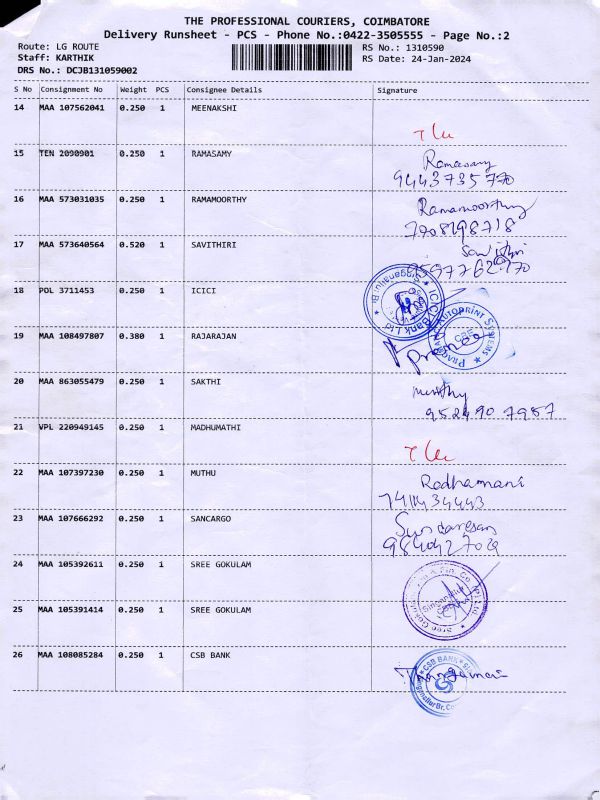 THE PROFESSIONAL COURIERS, COIMBATORE
Delivery Runsheet - PCS - Phone No.:0422-3505555 - Page No.:2
Route: LG ROUTE RS No.: 1310590
Staff: KARTHIK RS Date: 24-Jan-2024
DRS No.: DCJB131059002
S No Consignment No Weight PCS Consignee Details Signature
14 MAA 107562041 0.250 1 MEENAKSHI
15 TEN 2090901 0.250 1 RAMASAMY Ramasamy
9443735770
16 MAA 573031035 0.250 1 RAMAMOORTHY Ramamoorthy
7708198718
17 MAA 573640564 0.520 1 SAVITHIRI Savithri
18 POL 3711453 0.250 1 ICICI ICICI Bank Ltd
19 MAA 108497807 0.380 1 RAJARAJAN AUTOPRINT SYSTEMS CBE
20 MAA 863055479 0.250 1 SAKTHI
21 VPL 220949145 0.250 1 MADHUMATHI
22 MAA 107397230 0.250 1 MUTHU Radhamani
23 MAA 107666292 0.250 1 SANCARGO Sundaresan
24 MAA 105392611 0.250 1 SREE GOKULAM
25 MAA 105391414 0.250 1 SREE GOKULAM
26 MAA 108085284 0.250 1 CSB BANK CSB BANK